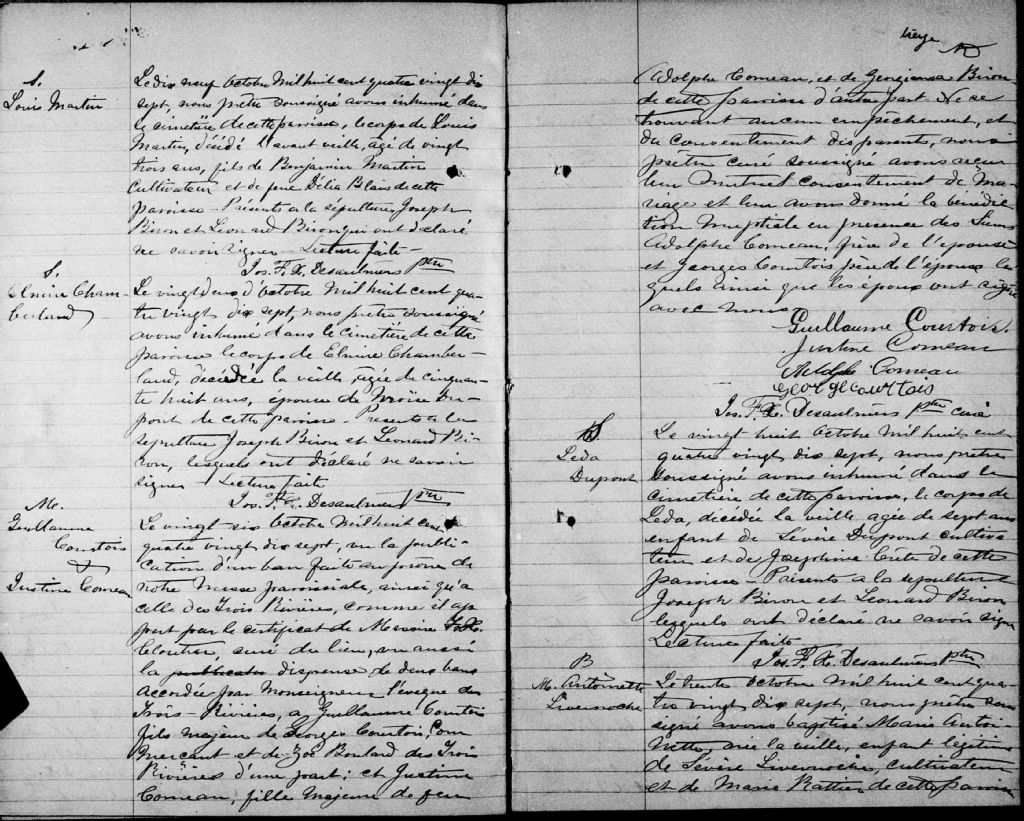 S.
Louis Martin
Le dix neuf Octobre Mil huit cent quatre vingt dix
sept, nous prêtre soussigné avons inhumé dans
le cimetière de cette paroisse, le corps de Louis
Martin, décédé l'avant veille, agé de vingt
trois ans, fils de Benjamin Martin
Cultivateur et de feue Délia Blais de cette
paroisse - Présents a la sépulture, Joseph
Biron et Léonard Biron qui ont déclaré
ne savoir signer - Lecture faite -
Jos. F. X. Desaulniers ptre
S.
Elmire Cham-
berland
Le vingt deux d'Octobre Mil huit cent qua-
tre vingt dix sept, nous prêtre soussigné
avons inhumé dans le cimetière de cette
paroisse le corps de Elmire Chamber-
land, décédée la veille, agée de cinquan-
te huit ans, épouse de Moïse Du-
pont de cette paroisse - Présents a la
sepulture Joseph Biron et Léonard Bi-
ron, lesquels ont déclaré ne savoir
signer Lecture faite
Jos. F. X. Desaulniers ptre
M.
Guillaume
Courtois
&
Justine Comeau
Le vingt six Octobre Mil huit cent
quatre vingt dix sept, vu la publi-
cation d'un ban faite au prône de
notre messe paroissiale, ainsi qu'à
celle des Trois Rivières, comme il ap-
pert par le certificat de Messire F. X.
Cloutier, curé du lieu, vu aussi
la publication dispense de deux bans
accordée par Monseigneur l'évêque des
Trois-Rivières, a Guillaume Courtois
fils majeur de Georges Courtois, Com
mercant et de Zoé Boulard des Trois
Rivières d'une part; et Justine
Comeau, fille majeure de feu
treize
Adolphe Comeau, et de Georgianna Biron
de cette paroisse d'autre part Ne se
trouvant aucun empêchement, et
du consentement des parents, nous
prêtre curé soussigné avons reçu
leur mutuel consentement de Ma-
riage et leur avons donné la bénédic
tion nuptiale en présence des Sieurs
Adolphe Comeau, frère de l'épouse
et Georges Courtois père de l'époux les
quels ainsi que les époux ont signé
avec nous
Guillaume Courtois.
Justine Comeau
Adolph Comeau
George courtois
Jos. F. X. Desaulniers ptre curé
S
Leda
Dupont
Le vingt huit Octobre Mil huit cent
quatre vingt dix sept, nous prêtre
soussigné avons inhumé dans le
cimetière de cette paroisse, le corps de
Leda, décédée la veille agée de sept ans
enfant de Sévère Dupont cultiva
teur et de Josephine Crête de cette
paroisse - Présents a la sepulture
Joseph Biron et Léonard Biron
lesquels ont déclaré ne savoir signer
Lecture faite
Jos. F. X. Desaulniers ptre
B
M. Antoinette
Livernoche
Le trente Octobre Mil huit cent qua-
tre vingt dix sept, nous prêtre sous
signé avons baptisé Marie Antoi-
nette, née la veille, enfant légitime
de Sévère Livernoche, cultivateur
et de Marie Rattier de cette paroisse